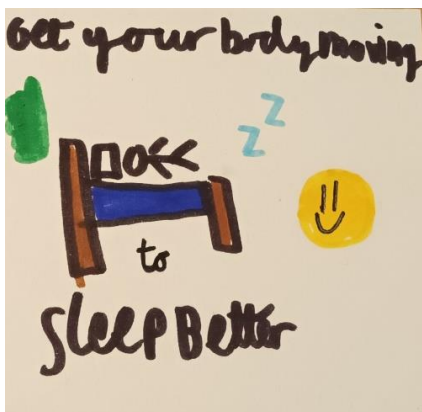 Get your body moving
z
z
to
Sleep Better